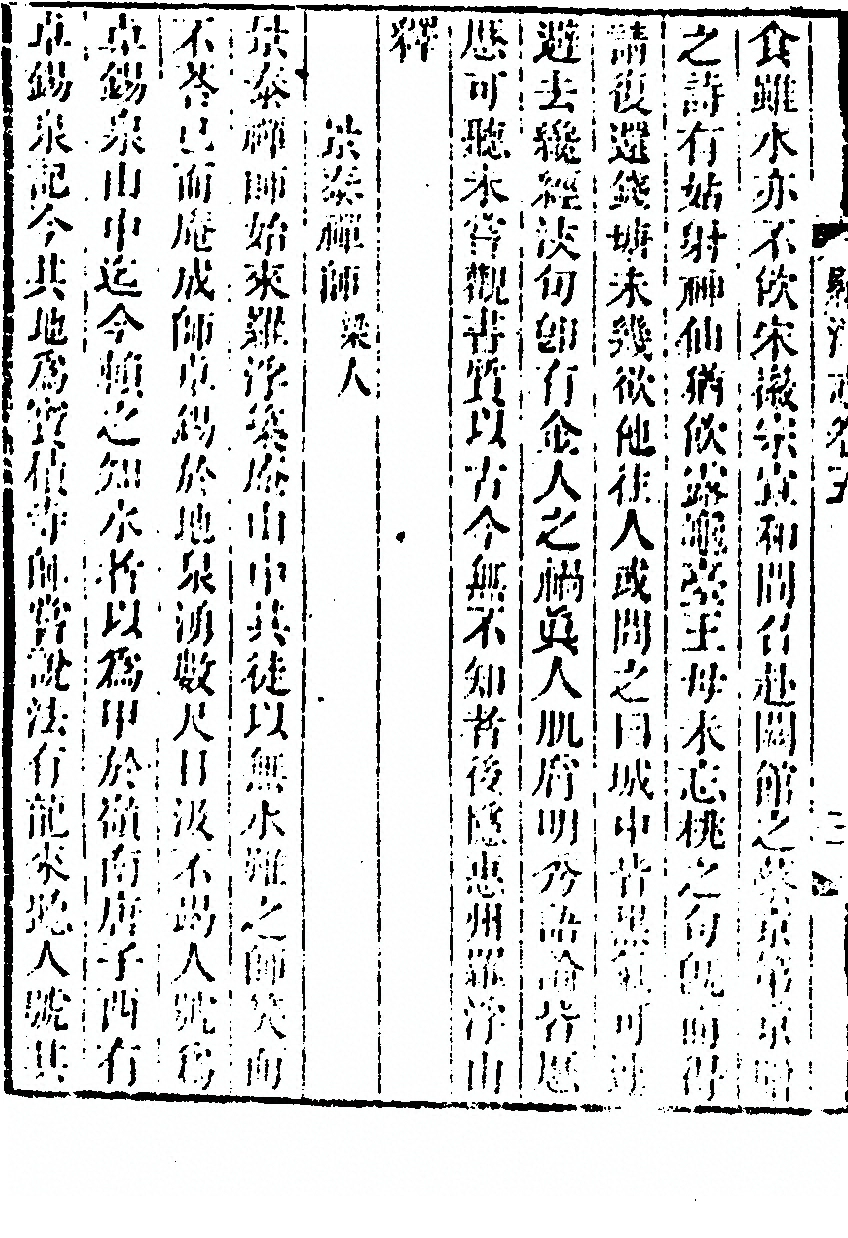 食雖水亦不飲宋徽宗宣和間召赴闕館之蔡京第京贈
之詩有姑射神仙猶飲露瑤臺王母未忘桃之句旣而得
請復還錢塘未幾欲他往人或問之曰城中皆黑氣可速
避去纔經浹旬卽有金人之禍眞人肌膚明瑩語論皆歷
歷可聽未嘗觀書質以古今無不知者後隱惠州羅浮山
釋
景泰禪師梁人
景泰禪師始來羅浮築庵山中其徒以無水難之師笑而
不答已而庵成師卓錫於地泉湧數尺日汲不竭人號爲
卓錫泉山中迄今賴之知水者以爲甲於嶺南唐子西有
卓錫泉記今其地爲寶積寺師嘗說法有龍來聽人號其